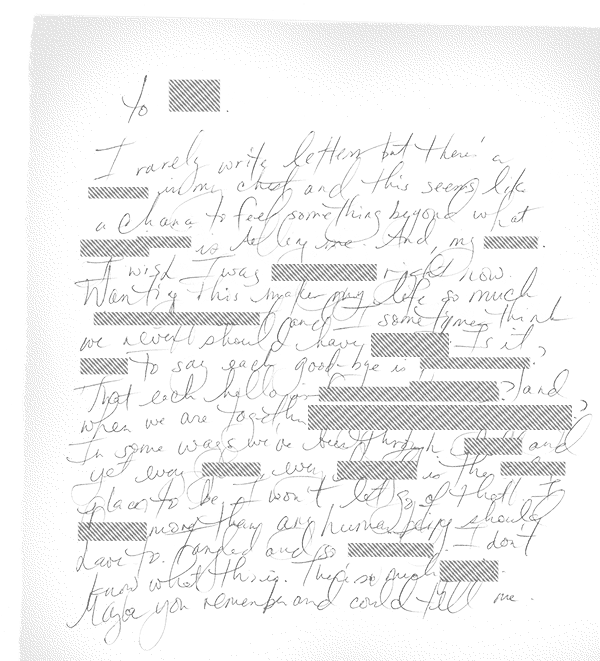 To
I rarely write letters but there's a
in my chest and this seems like
a chance to feel something beyond what
is telling me. And, my .
I wish I was right now.
Wanting this makes my life so much
and I sometimes think
we never should have . Is it
to say each good-bye is ?
That each hello is ? and
when we are together ?
In some ways we've been through and
yet every , every is the
place to be. I won't let go of that. I
more than any human being should
have to. and so . I don't
know what this is. There's so much .
Maybe you remember and could tell me.